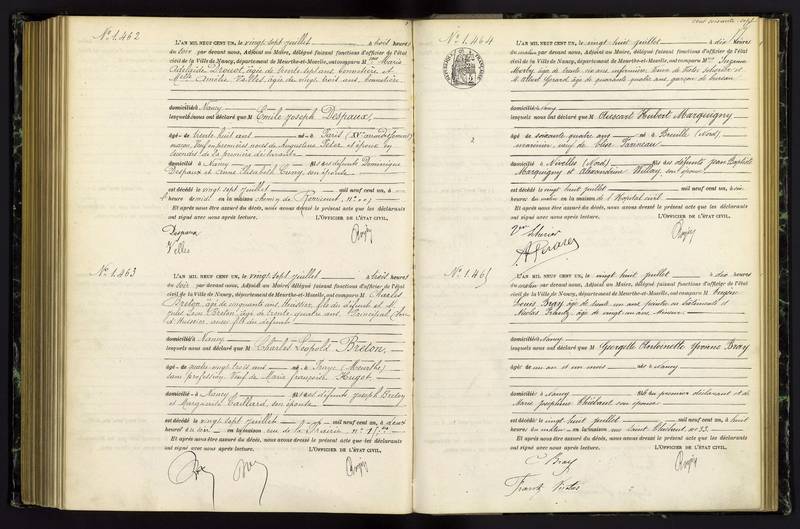 N° 1.462
L'AN MIL NEUF CENT UN, le vingt sept juillet à huit heures
du soir par devant nous, Adjoint au Maire, délégué faisant fonctions d'officier de l'état
civil de la Ville de Nancy, département de Meurthe-et-Moselle, ont comparu M Marie
Adélaïde Drouot, âgée de trente sept ans, bonnetière et
Velles, âgée de vingt trois ans, bonnetière
domicilié à Nancy
lesquels nous ont déclaré que M Emile Joseph Despaux,
âgé de trente huit ans né à Paris (XVe arrondissement)
maçon, et époux en
secondes de la première déclarante
domicilié à Nancy fils des défunts Dominique
Despaux et Anne Elisabeth Cuny, son épouse
est décédé le vingt sept juillet mil neuf cent un, à
heure de midi en la maison chemin de
Et après nous être assuré du décès, nous avons dressé le présent acte que les déclarants
ont signé avec nous après lecture. L'OFFICIER DE L'ÉTAT CIVIL,
Despaux
Velles
N° 1.463
L'AN MIL NEUF CENT UN, le vingt sept juillet à huit heures
du soir par devant nous, Adjoint au Maire, délégué faisant fonctions d'officier de l'état
civil de la Ville de Nancy, département de Meurthe-et-Moselle, ont comparu M Charles
Breton, âgé de cinquante ans, Huissier, fils du défunt et M
Jules Breton, âgé de trente quatre ans, Principal
d'Huissier, fils du défunt
domiciliés à Nancy
lesquels nous ont déclaré que M Charles Léopold Breton,
âgé de quatre vingt trois ans né à (Meurthe)
sans profession, Veuf de Marie françoise Hugot
domicilié à Nancy fils des défunts Joseph Breton
et Marguerite Gaillard, son épouse
est décédé le vingt sept juillet mil neuf cent un, à deux
heures du soir en la maison rue de la Prairie, n°
Et après nous être assuré du décès, nous avons dressé le présent acte que les déclarants
ont signé avec nous après lecture. L'OFFICIER DE L'ÉTAT CIVIL,
cent soixante sept
N° 1.464
RÉPUBLIQUE FRANÇAISE
L'AN MIL NEUF CENT UN, le vingt huit juillet à dix heures
du matin par devant nous, Adjoint au Maire, délégué faisant fonctions d'officier de l'état
civil de la Ville de Nancy, département de Meurthe-et-Moselle, ont comparu M Suzanne
âgé de trente six ans, infirmière, Veuve de Victor et
M Albert Gérard âgé de quarante quatre ans garçon de bureau
domiciliés à Nancy
lesquels nous ont déclaré que M Hubert Marquigny
âgé de soixante quatre ans né à (Nord)
marinier, veuf de
domicilié à Nivelles (Nord) fils des défunts Jean Baptiste
Marquigny et Alexandrine Willay, son épouse
est décédé le vingt huit juillet mil neuf cent un, à six
heures du matin en la maison de l'Hôpital civil
Et après nous être assuré du décès, nous avons dressé le présent acte que les déclarants
ont signé avec nous après lecture. L'OFFICIER DE L'ÉTAT CIVIL,
N° 1.465
L'AN MIL NEUF CENT UN, le vingt huit juillet à dix heures
du matin par devant nous, Adjoint au Maire, délégué faisant fonctions d'officier de l'état
civil de la Ville de Nancy, département de Meurthe-et-Moselle, ont comparu M
Louis Bray âgé de trente un ans peintre en bâtiments et
Nicolas Frantz âgé de vingt un ans
domiciliés à Nancy
lesquels nous ont déclaré que M Georgette Antoinette Yvonne Bray
âgée de un an et un mois née à Nancy
domiciliée à Nancy fille du premier déclarant et de
Marie Joséphine Thiébaut son épouse
est décédée le vingt huit juillet mil neuf cent un, à huit
heures du matin en la maison rue Saint Thiébaut n° 33
Et après nous être assuré du décès, nous avons dressé le présent acte que les déclarants
ont signé avec nous après lecture. L'OFFICIER DE L'ÉTAT CIVIL,
Bray
Frantz Nicolas